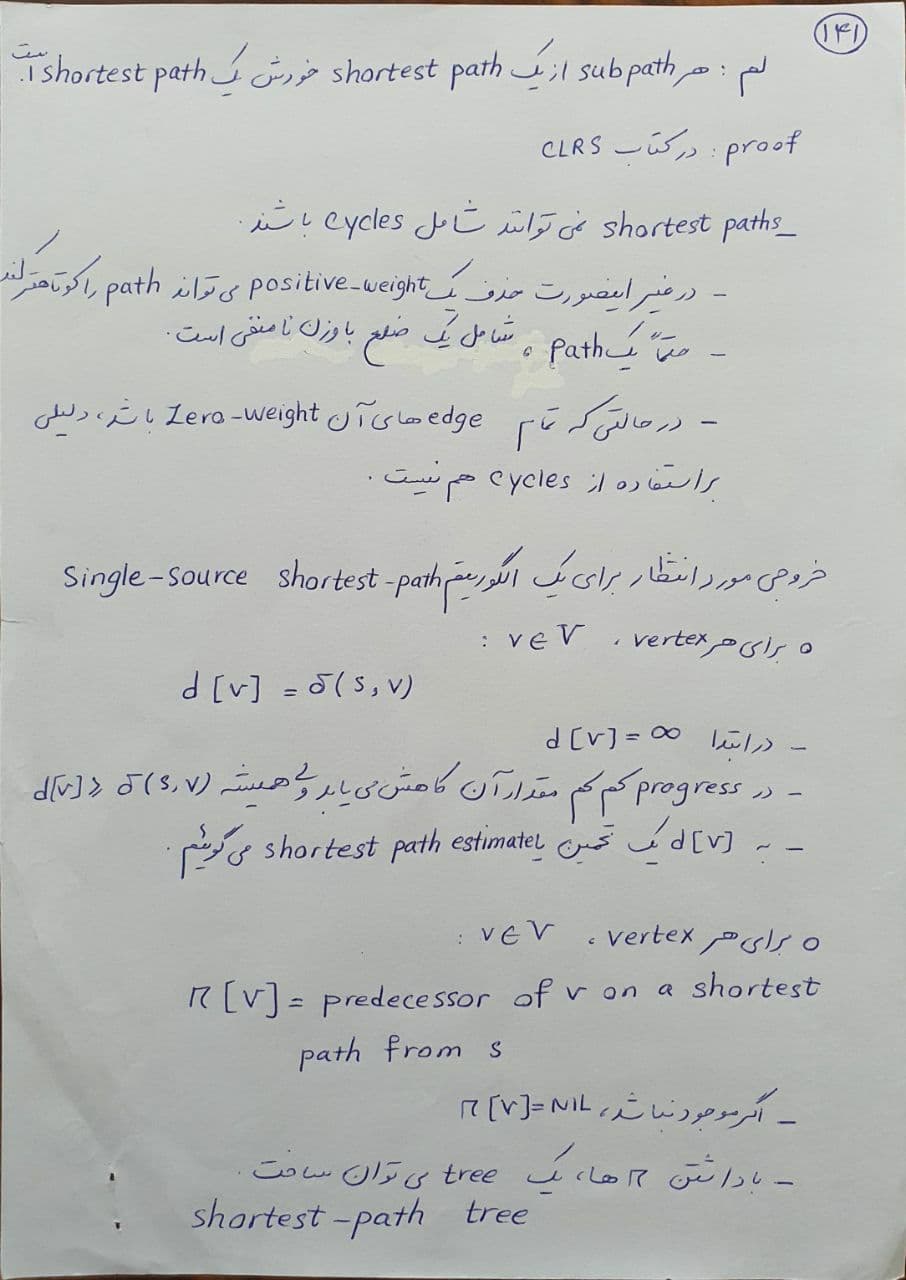 ۱۴۱
لم : هر subpath از یک shortest path خودش یک shortest path است.
proof : در کتاب CLRS
_ shortest paths نمی توانند شامل cycles باشند.
- در غیر اینصورت حذف یک positive-weight می تواند path را کوتاهتر کند
- حتماً یک path ، شامل یک ضلع با وزن نامنفی است.
- در حالتی که تمام edge های آن Zero-weight باشد، دلیلی
بر استفاده از cycles هم نیست.
خروجی مورد انتظار برای یک الگوریتم Single-source shortest-path
o برای هر vertex ، v∈V :
d[v] = δ(s,v)
- در ابتدا d[v]=∞
- در progress کم کم مقدار آن کاهش می یابد ولی همیشه d[v]⩾ δ(s,v)
- به d[v] یک تخمین یا shortest path estimate می گوییم.
o برای هر vertex ، v∈V :
π[v]= predecessor of v on a shortest
path from s
- اگر موجود نباشد، π[v]=NIL
- با داشتن π ها، یک tree می توان ساخت.
shortest-path tree